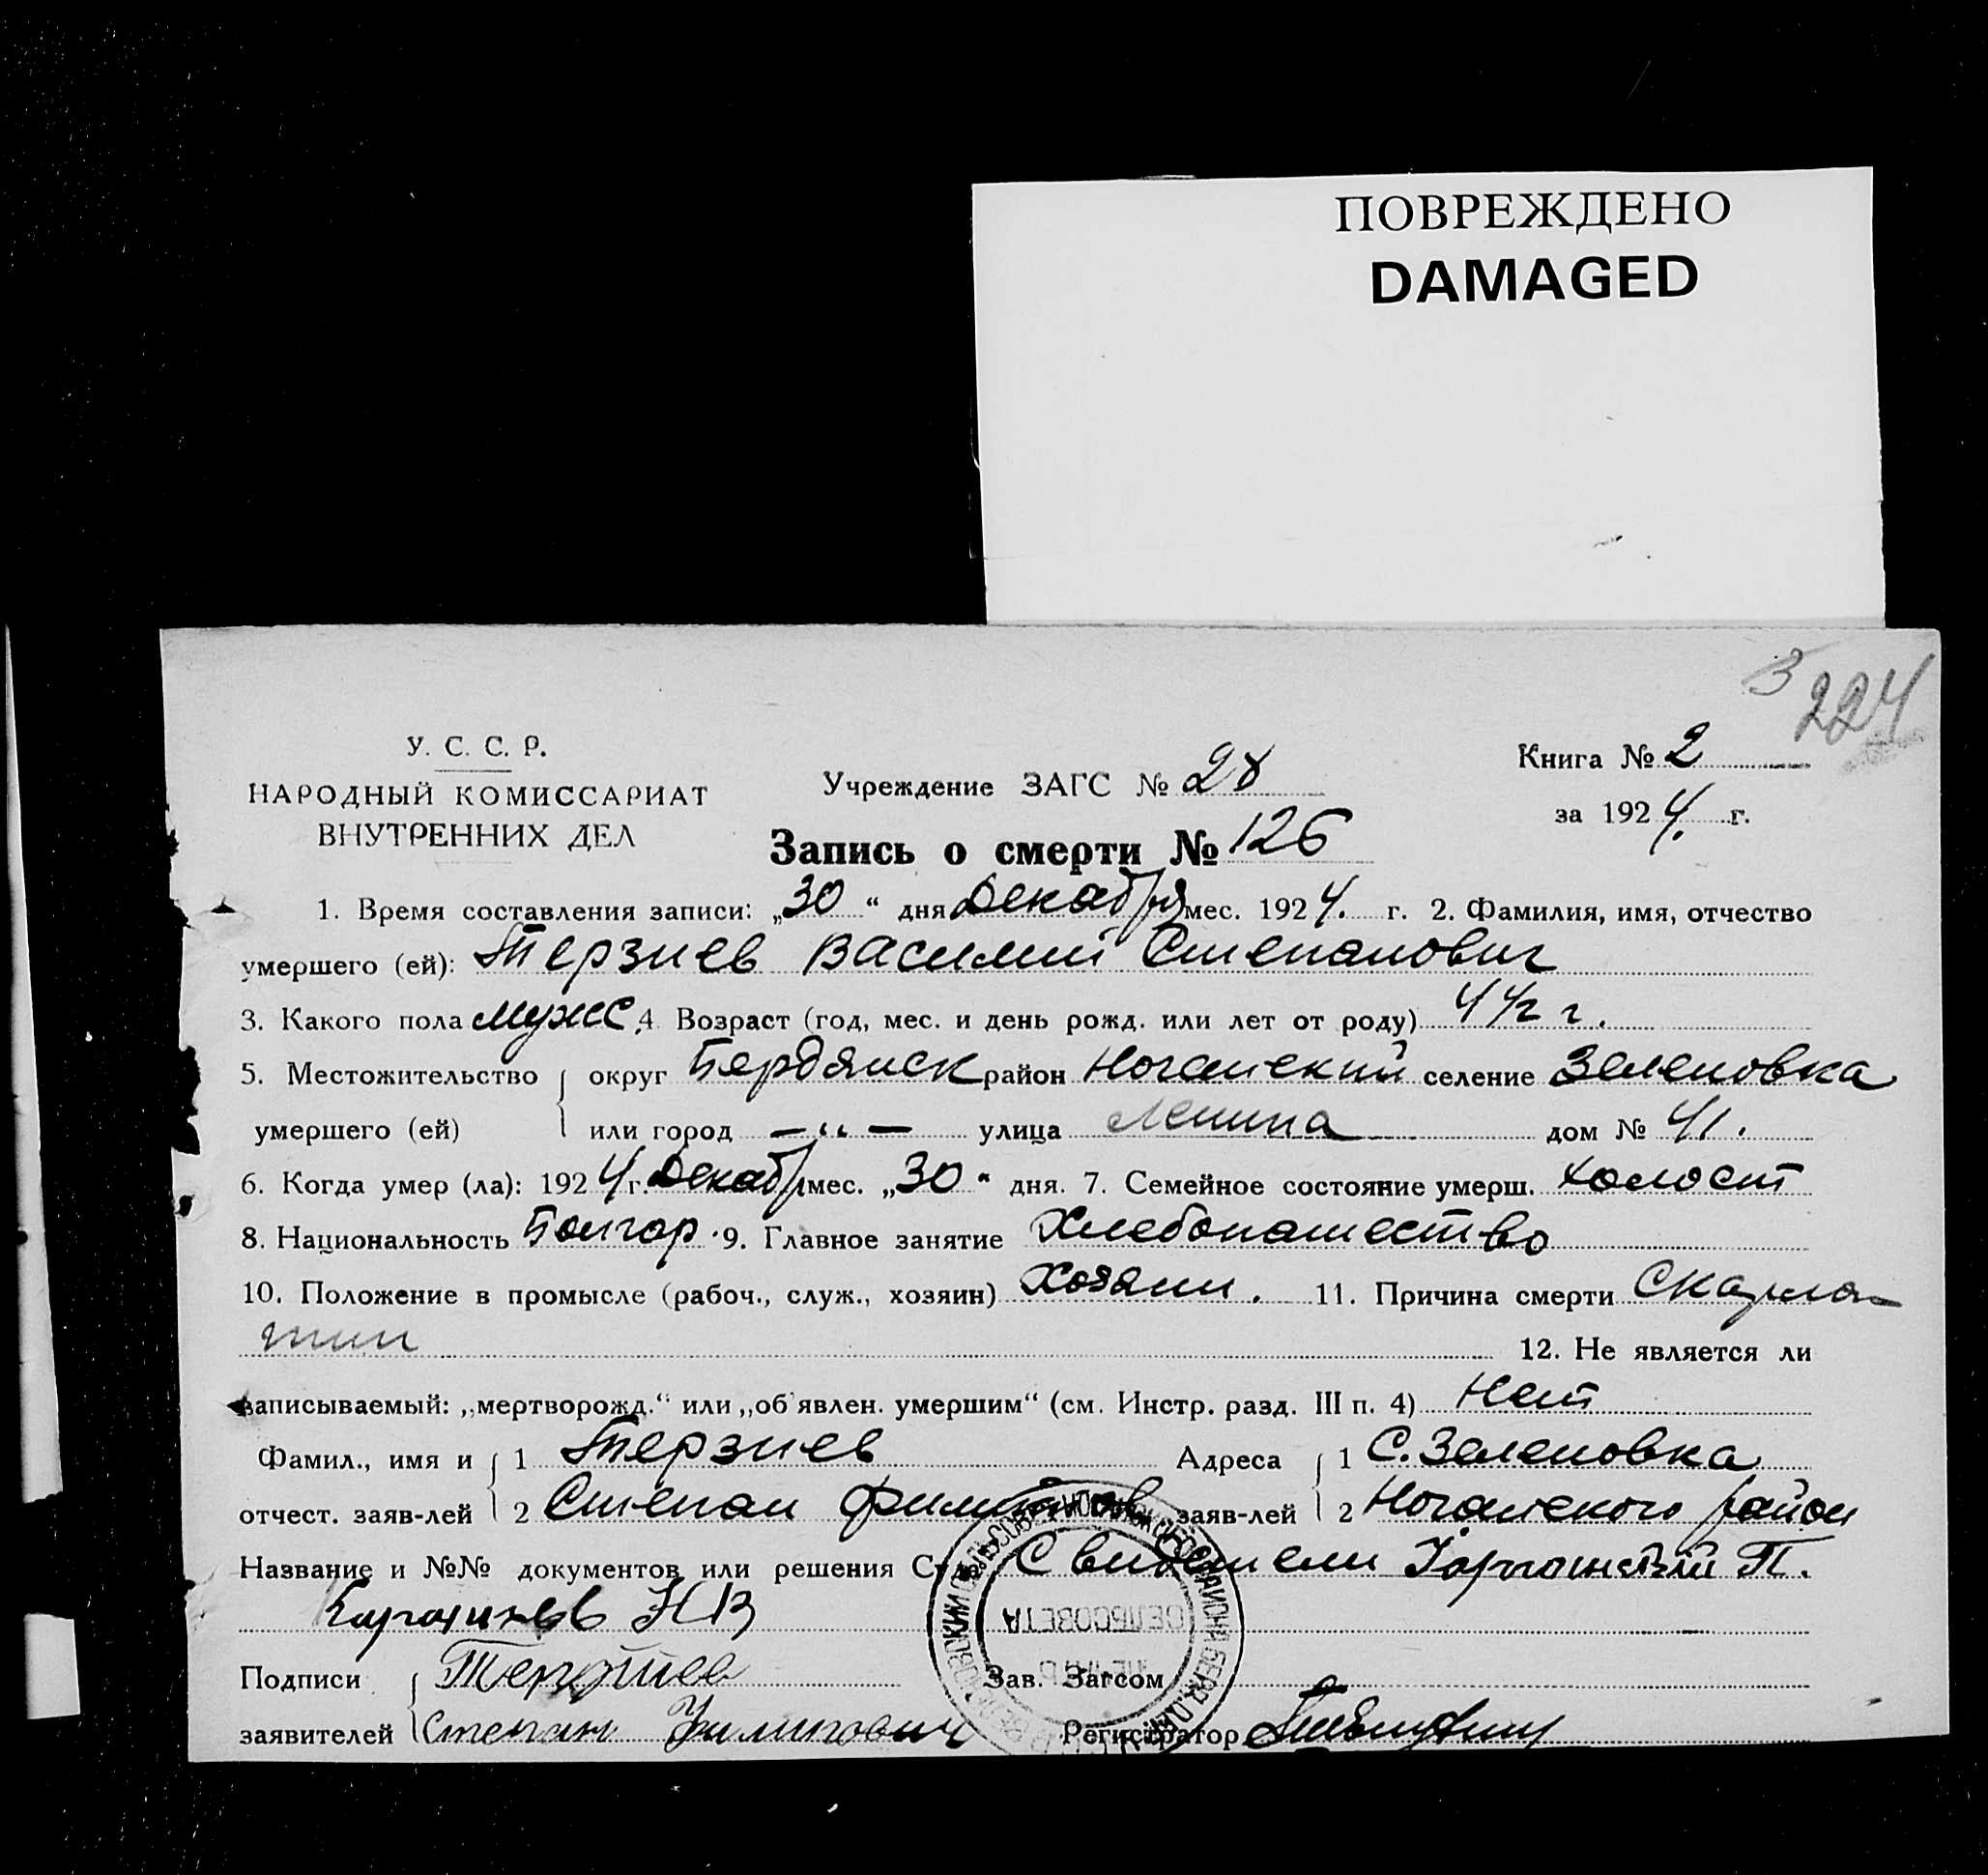 ПОВРЕЖДЕНО
DAMAGED
3
224
У. С. С. Р.
НАРОДНЫЙ КОМИССАРИАТ
ВНУТРЕННИХ ДЕЛ
Учреждение ЗАГС № 28
Книга № 2
за 1924. г.
Запись о смерти № 126
1. Время составления записи: „30“ дня Декабря мес. 1924. г. 2. Фамилия, имя, отчество
умершего (ей): Терзиев Василий Степанович
3. Какого пола мужс 4. Возраст (год, мес. и день рожд. или лет от роду) 4 1/2 г.
5. Местожительство округ Бердянск район Ногайский селение Зеленовка
умершего (ей) или город — „ — улица Ленина дом № 41.
6. Когда умер (ла): 1924 г. Декабр мес. „30“ дня. 7. Семейное состояние умерш. холост
8. Национальность Болгар. 9. Главное занятие Хлебопашество
10. Положение в промысле (рабоч., служ., хозяин) Хозяин. 11. Причина смерти Скарла-
тин 12. Не является ли
записываемый: „мертворожд.“ или „об'явлен. умершим“ (см. Инстр. разд. III п. 4) Нет
Фамил., имя и 1 Терзиев Адреса 1 С. Зеленовка
отчест. заяв-лей 2 Степан заяв-лей 2 Ногайского район
Название и №№ документов или решения Свидетели П.
Н В
Подписи Терзиев Зав. Загсом
заявителей Степан Филипович Регистратор
СЕЛЬСОВЕТА